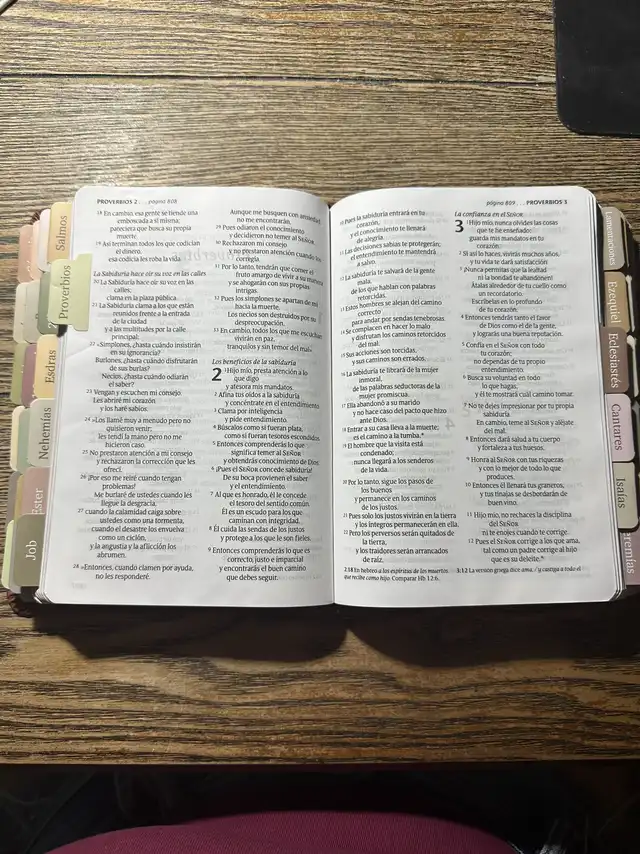 PROVERBIOS 2 . . . página 808
18 En cambio, esa gente se tiende una
emboscada a sí misma;
pareciera que busca su propia
muerte.
19 Así terminan todos los que codician
el dinero;
esa codicia les roba la vida.
La Sabiduría hace oír su voz en las calles
20 La Sabiduría hace oír su voz en las
calles;
clama en la plaza pública.
21 La Sabiduría clama a los que están
reunidos frente a la entrada
de la ciudad
y a las multitudes por la calle
principal:
22 «Simplones, ¿hasta cuándo insistirán
en su ignorancia?
Burlones, ¿hasta cuándo disfrutarán
de sus burlas?
Necios, ¿hasta cuándo odiarán
el saber?
23 Vengan y escuchen mi consejo.
Les abriré mi corazón
y los haré sabios.
24 »Los llamé muy a menudo pero no
quisieron venir;
les tendí la mano pero no me
hicieron caso.
25 No prestaron atención a mi consejo
y rechazaron la corrección que les
ofrecí.
26 ¡Por eso me reiré cuando tengan
problemas!
Me burlaré de ustedes cuando les
llegue la desgracia,
27 cuando la calamidad caiga sobre
ustedes como una tormenta,
cuando el desastre los envuelva
como un ciclón,
y la angustia y la aflicción los
abrumen.
28 »Entonces, cuando clamen por ayuda,
no les responderé.
Aunque me busquen con ansiedad,
no me encontrarán.
29 Pues odiaron el conocimiento
y decidieron no temer al SEÑOR.
30 Rechazaron mi consejo
y no prestaron atención cuando los
corregía.
31 Por lo tanto, tendrán que comer el
fruto amargo de vivir a su manera
y se ahogarán con sus propias
intrigas.
32 Pues los simplones se apartan de mí
hacia la muerte.
Los necios son destruidos por su
despreocupación.
33 En cambio, todos los que me escuchan
vivirán en paz,
tranquilos y sin temor del mal».
Los beneficios de la sabiduría
2 1 Hijo mío, presta atención a lo
que digo
y atesora mis mandatos.
2 Afina tus oídos a la sabiduría
y concéntrate en el entendimiento.
3 Clama por inteligencia
y pide entendimiento.
4 Búscalos como si fueran plata,
como si fueran tesoros escondidos.
5 Entonces comprenderás lo que
significa temer al SEÑOR
y obtendrás conocimiento de Dios.
6 ¡Pues el SEÑOR concede sabiduría!
De su boca provienen el saber
y el entendimiento.
7 Al que es honrado, él le concede
el tesoro del sentido común.
Él es un escudo para los que
caminan con integridad.
8 Él cuida las sendas de los justos
y protege a los que le son fieles.
9 Entonces comprenderás lo que es
correcto, justo e imparcial
y encontrarás el buen camino
que debes seguir.
página 809 . . . PROVERBIOS 3
10 Pues la sabiduría entrará en tu
corazón,
y el conocimiento te llenará
de alegría.
11 Las decisiones sabias te protegerán;
el entendimiento te mantendrá
a salvo.
12 La sabiduría te salvará de la gente
mala,
de los que hablan con palabras
retorcidas.
13 Estos hombres se alejan del camino
correcto
para andar por sendas tenebrosas.
14 Se complacen en hacer lo malo
y disfrutan los caminos retorcidos
del mal.
15 Sus acciones son torcidas,
y sus caminos son errados.
16 La sabiduría te librará de la mujer
inmoral,
de las palabras seductoras de la
mujer promiscua.
17 Ella abandonó a su marido
y no hace caso del pacto que hizo
ante Dios.
18 Entrar a su casa lleva a la muerte;
es el camino a la tumba.*
19 El hombre que la visita está
condenado;
nunca llegará a los senderos
de la vida.
20 Por lo tanto, sigue los pasos de
los buenos
y permanece en los caminos
de los justos.
21 Pues solo los justos vivirán en la tierra
y los íntegros permanecerán en ella.
22 Pero los perversos serán quitados de
la tierra,
y los traidores serán arrancados
de raíz.
La confianza en el SEÑOR
3 1 Hijo mío, nunca olvides las cosas
que te he enseñado;
guarda mis mandatos en tu
corazón.
2 Si así lo haces, vivirás muchos años,
y tu vida te dará satisfacción.
3 ¡Nunca permitas que la lealtad
ni la bondad te abandonen!
Átalas alrededor de tu cuello como
un recordatorio.
Escríbelas en lo profundo
de tu corazón.
4 Entonces tendrás tanto el favor
de Dios como el de la gente,
y lograrás una buena reputación.
5 Confía en el SEÑOR con todo
tu corazón;
no dependas de tu propio
entendimiento.
6 Busca su voluntad en todo
lo que hagas,
y él te mostrará cuál camino tomar.
7 No te dejes impresionar por tu propia
sabiduría.
En cambio, teme al SEÑOR y aléjate
del mal.
8 Entonces dará salud a tu cuerpo
y fortaleza a tus huesos.
9 Honra al SEÑOR con tus riquezas
y con lo mejor de todo lo que
produces.
10 Entonces él llenará tus graneros,
y tus tinajas se desbordarán de
buen vino.
11 Hijo mío, no rechaces la disciplina
del SEÑOR
ni te enojes cuando te corrige.
12 Pues el SEÑOR corrige a los que ama,
tal como un padre corrige al hijo
que es su deleite.*
2:18 En hebreo a los espíritus de los muertos. 3:12 La versión griega dice ama, / y castiga a todo el
que recibe como hijo. Comparar Hb 12:6.
Salmos
Proverbios
Esdras
Nehemías
Ester
Job
Lamentaciones
Ezequiel
Eclesiastés
Cantares
Isaías